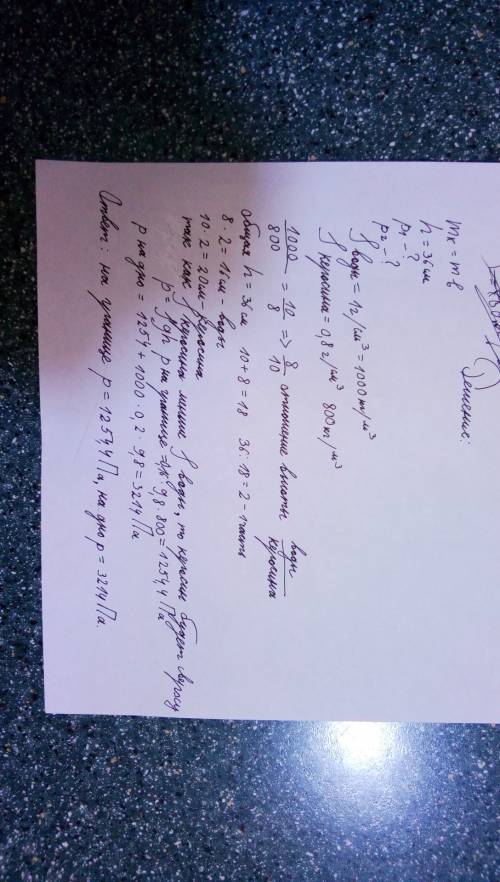 Решение:
mк = mв
h = 36 см
p₁ - ?
p₂ - ?
ρ воды = 1 г/см³ = 1000 кг/м³
ρ керосина = 0,8 г/см³ 800 кг/м³
1000/800 = 10/8 => 8/10 отношение высоты воды/керосина
общая h = 36 см 10+8 = 18 36:18 = 2 - 1 часть
8·2 = 16 см - воды
10·2 = 20 см - керосина
так как ρ керосина меньше ρ воды, то керосин будет сверху
p = ρgh p на границе = 9,8·800 = 1254,4 Па
p на дно = 1254 + 1000·0,2·9,8 = 3214 Па
Ответ: на границе p = 1254,4 Па, на дно p = 3214 Па.